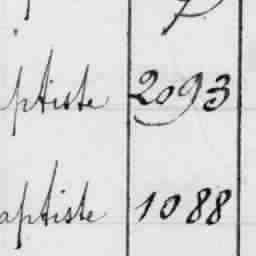 ptiste 2093
aptiste 1088